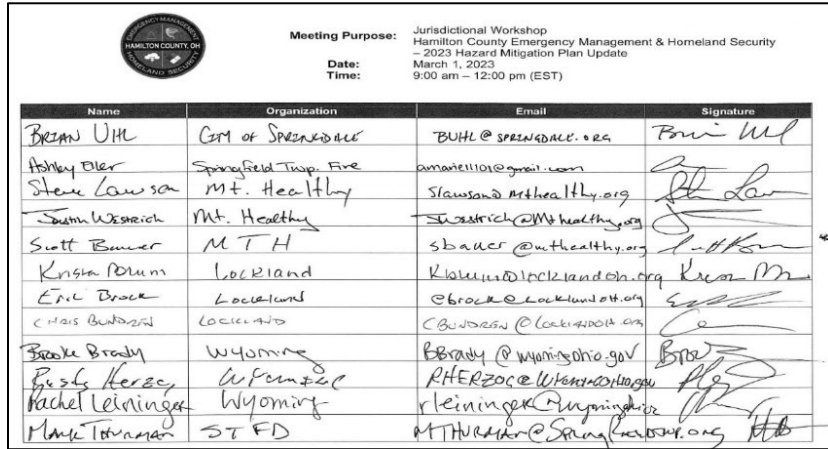 EMERGENCY MANAGEMENT
HAMILTON COUNTY, OH
HOMELAND SECURITY
Meeting Purpose: Jurisdictional Workshop
Hamilton County Emergency Management & Homeland Security
– 2023 Hazard Mitigation Plan Update
Date: March 1, 2023
Time: 9:00 am – 12:00 pm (EST)
Name Organization Email Signature
BRIAN UHL CITY OF SPRINGDALE BUHL@SPRINGDALE.ORG
Ashley Eller Springfield Twp. Fire amarie1101@gmail.com
Steve Lawson Mt. Healthy slawson@mthealthy.org
Justin Westrich Mt. Healthy Jwestrich@Mthealthy.org
Scott Bauer MTH sbauer@mthealthy.org
Krista Blum Lockland Kblum@locklandoh.org
Eric Brock Lockland ebrock@LocklandOH.org
CHRIS BUNDREN LOCKLAND CBUNDREN@LOCKLANDOH.ORG
Brooke Brady Wyoming BBrady@wyomingohio.gov
Rusty Herzog Wyoming RHERZOG@WYOMINGOHIO.gov
Rachel Leininger Wyoming rleininger@wyomingohio
Mark Thurman STFD MTHURMAN@SpringfieldTWP.org